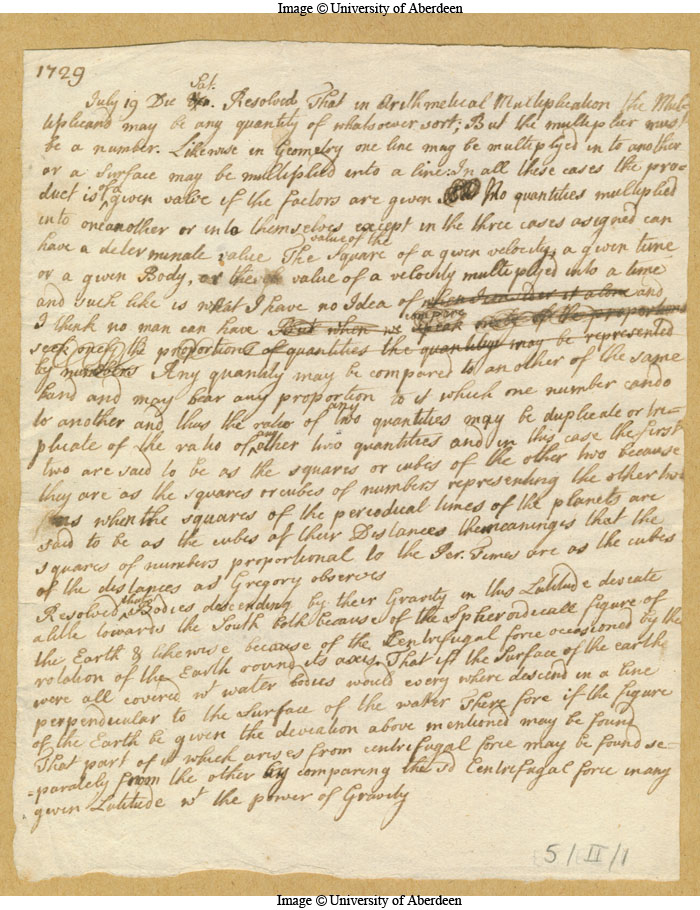 Image © University of Aberdeen
1729
Sat.
July 19 Die Resolved That in Arithmetical Multiplication the Mul-
tiplicand may be any quantity of whatsoever sort; But the multiplier must
be a number. Likewise in Geometry one line may be multiplyed in to another
or a Surface may be multiplied into a line. In all these cases the pro-
duct is of a given value if the factors are given No quantities multiplied
into oneanother or into themselves except in the three cases asigned can
have a determinate value The Square of a given velocity, a given time
value of the
or a given Body, or the value of a velocity multiplyed into a time
and such like is what I have no Idea of when I consider it alone and
I think no man can have But when we compare speak of the proportions
seek only the proportions of quantities the quantitys may be represented
by numbers Any quantity may be compared to an other of the same
kind and may bear any proportion to it which one number can do
to another and thus the ratio of any two quantities may be duplicate or tri-
plicate of the ratio of any other two quantities and in this case the first
two are said to be as the squares or cubes of the other two because
they are as the squares or cubes of numbers representing the other two
Thus when the squares of the periodical times of the planets are
said to be as the cubes of their Distances the meaning is that the
squares of numbers proportional to the Per. Times are as the cubes
of the distances as Gregory observes
Resolved Bodies descending by their Gravity in this Latitude deviate
alitle towards the South both because of the Spheroidicall figure of
the Earth & likewise because of the Centrifugal force occasioned by the
rotation of the Earth round its axis. That if the Surface of the earth
were all covered wt water bodies would every where descend in a line
perpendicular to the Surface of the water Therefore if the figure
of the Earth be given the deviation above mentioned may be found
That part of it which arises from centrifugal force may be found se-
-parately from the other by comparing the sd Centrifugal force in any
given Latitude wt the power of Gravity
5/II/1
Image © University of Aberdeen